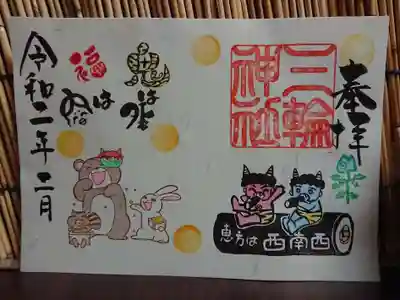 奉拝
三輪
神社
恵方は西南西
鬼は外
福は内
令和二年二月